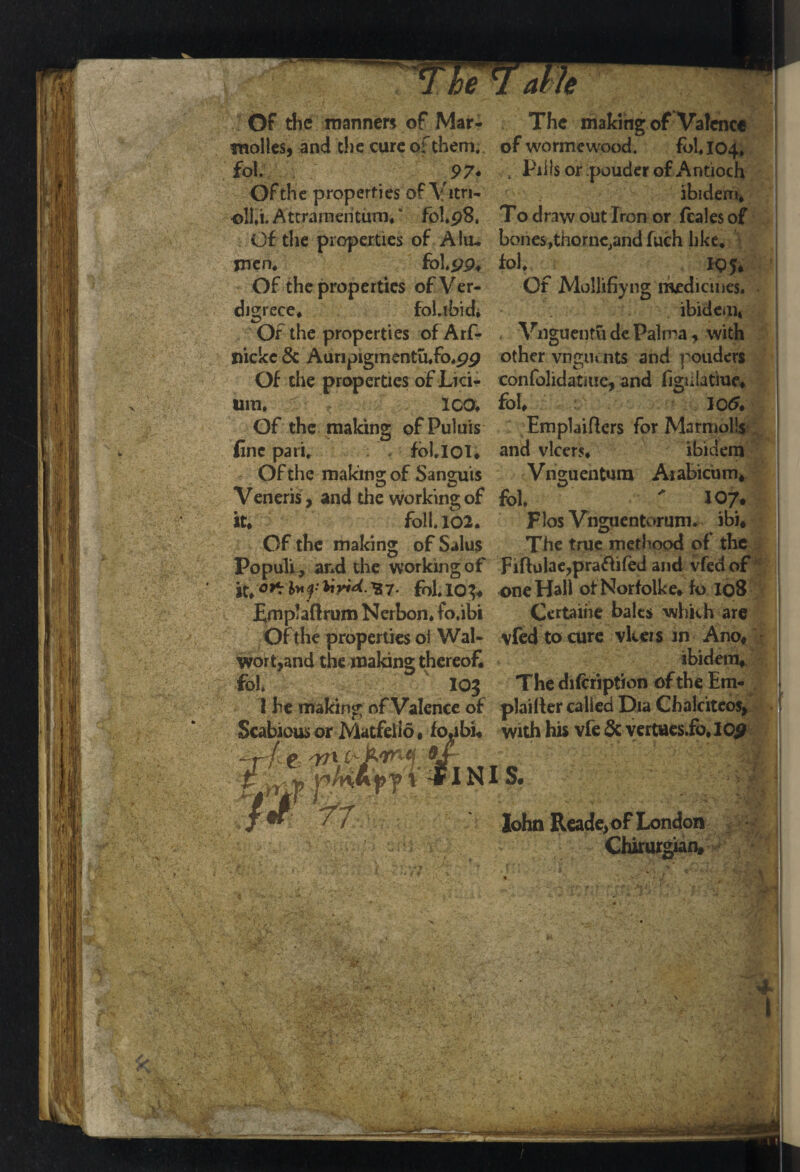 The Table
Of the manners of Mar-
molles, and the cure of them.
fol. 97.
Of the properties of Vitri-
oll,i. Attramentum. fol.98.
Of the properties of Alu-
men. fol.99.
Of the properties of Ver-
digrece. fol.ibid.
Of the properties of Arſ-
nicke & Auripigmentū.fo.99
Of the properties of Lici-
um. 100.
Of the making of Puluis
ſine pari. fol.101.
Of the making of Sanguis
Veneris, and the working of
it. foll.102.
Of the making of Salus
Populi, and the working of
it. 87. fol.103.
Emplaſtrum Nerbon. fo.ibi
Of the properties of Wal-
wort,and the making thereof.
fol. 103
The making of Valence of
Scabious or Matfello. fo.ibi.
The making of
phit
fol 77
The making of Valence
of wormewood. fol.104.
Pills or pouder of Antioch
ibidem.
To draw out Iron or ſcales of
bones,thorne,and ſuch like.
fol. 105.
Of Mollifiyng medicines.
ibidem.
Vnguentū de Palma, with
other vnguents and pouders
conſolidatiue, and ſigillatiue.
fol. 106.
Emplaiſters for Marmolls
and vlcers. ibidem
Vnguentum Arabicum.
fol. 107.
Flos Vnguentorum. ibi.
The true methood of the
Fiſtulae,practiſed and vſed of
one Hall of Norfolke. fo 108
Certaine bales which are
vſed to cure vlcers in Ano.
ibidem.
The diſcription of the Em-
plaiſter called Dia Chalciteos,
with his vſe & vertues.fo.109
FINIS.
Iohn Reade, of London
Chirurgian.